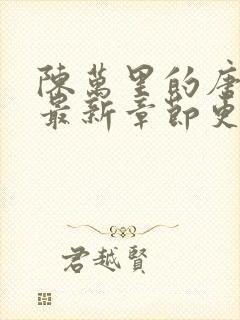 陳萬里的唐
最新章節更
君越賢